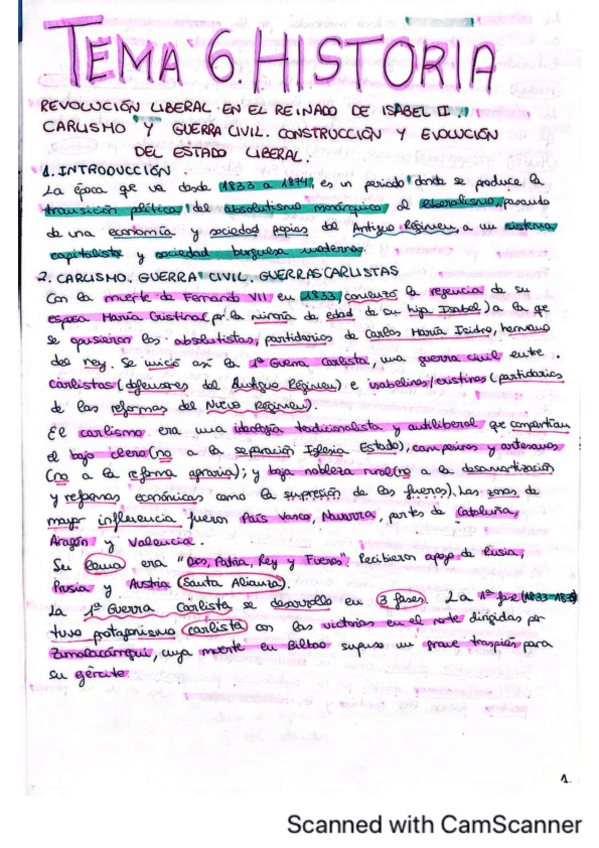 TEMA 6. HISTORIA
REVOLUCIÓN LIBERAL EN EL REINADO DE ISABEL II.
CARLISMO Y GUERRA CIVIL. CONSTRUCCIÓN Y EVOLUCIÓN
DEL ESTADO LIBERAL.
1. INTRODUCCIÓN
La época que va desde 1833 a 1874, es un periodo donde se produce la
transición política del absolutismo monárquico al liberalismo, pasando
de una economía y sociedad propias del Antiguo Régimen, a un sistema
capitalista y sociedad burguesa moderna.
2. CARLISMO. GUERRA CIVIL. GUERRAS CARLISTAS
Con la muerte de Fernando VII en 1833, comienza la regencia de su
esposa María Cristina (por la minoría de edad de su hija Isabel) a la que
se opusieron los absolutistas, partidarios de Carlos María Isidro, hermano
del rey. Se inició así la 1ª Guerra Carlista, una guerra civil entre
carlistas (defensores del Antiguo Régimen) e isabelinos/cristinos (partidarios
de las reformas del Nuevo Régimen).
El carlismo era una ideología tradicionalista y antiliberal que compartían
el bajo clero (no a la separación Iglesia Estado), campesinos y artesanos
(no a la reforma agraria); y baja nobleza rural (no a la desamortización
y reformas económicas como la supresión de los fueros). Las zonas de
mayor influencia fueron País Vasco, Navarra, partes de Cataluña,
Aragón y Valencia.
Su lema era "Dios, Patria, Rey y Fueros". Recibieron apoyo de Rusia,
Prusia y Austria (Santa Alianza).
La 1ª Guerra Carlista se desarrollo en 3 fases. La 1ª fase (1833-1835)
tuvo protagonismo carlista con las victorias en el norte dirigidas por
Zumalacárregui, cuya muerte en Bilbao supuso un grave traspiés para
su ejército.
1.
Scanned with CamScanner